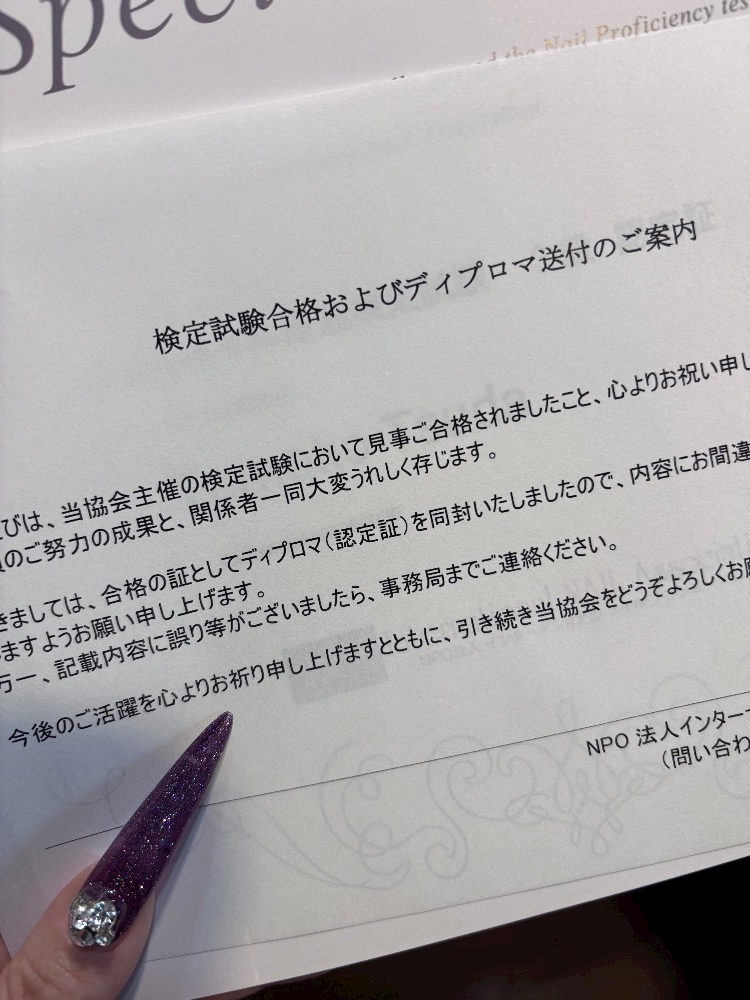 Spec
the Nail Proficiency tes
検定試験合格およびディプロマ送付のご案内
びは、当協会主催の検定試験において見事ご合格されましたこと、心よりお祝い申し
のご努力の成果と、関係者一同大変うれしく存じます。
きましては、合格の証としてディプロマ(認定証)を同封いたしましたので、内容にお間違
ますようお願い申し上げます。
万一、記載内容に誤り等がございましたら、事務局までご連絡ください。
今後のご活躍を心よりお祈り申し上げますとともに、引き続き当協会をどうぞよろしくお願
NPO 法人インター
(問い合わ